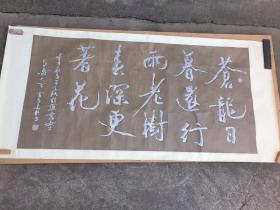 蒼龍日
暮還行
雨老樹
春深更
著花